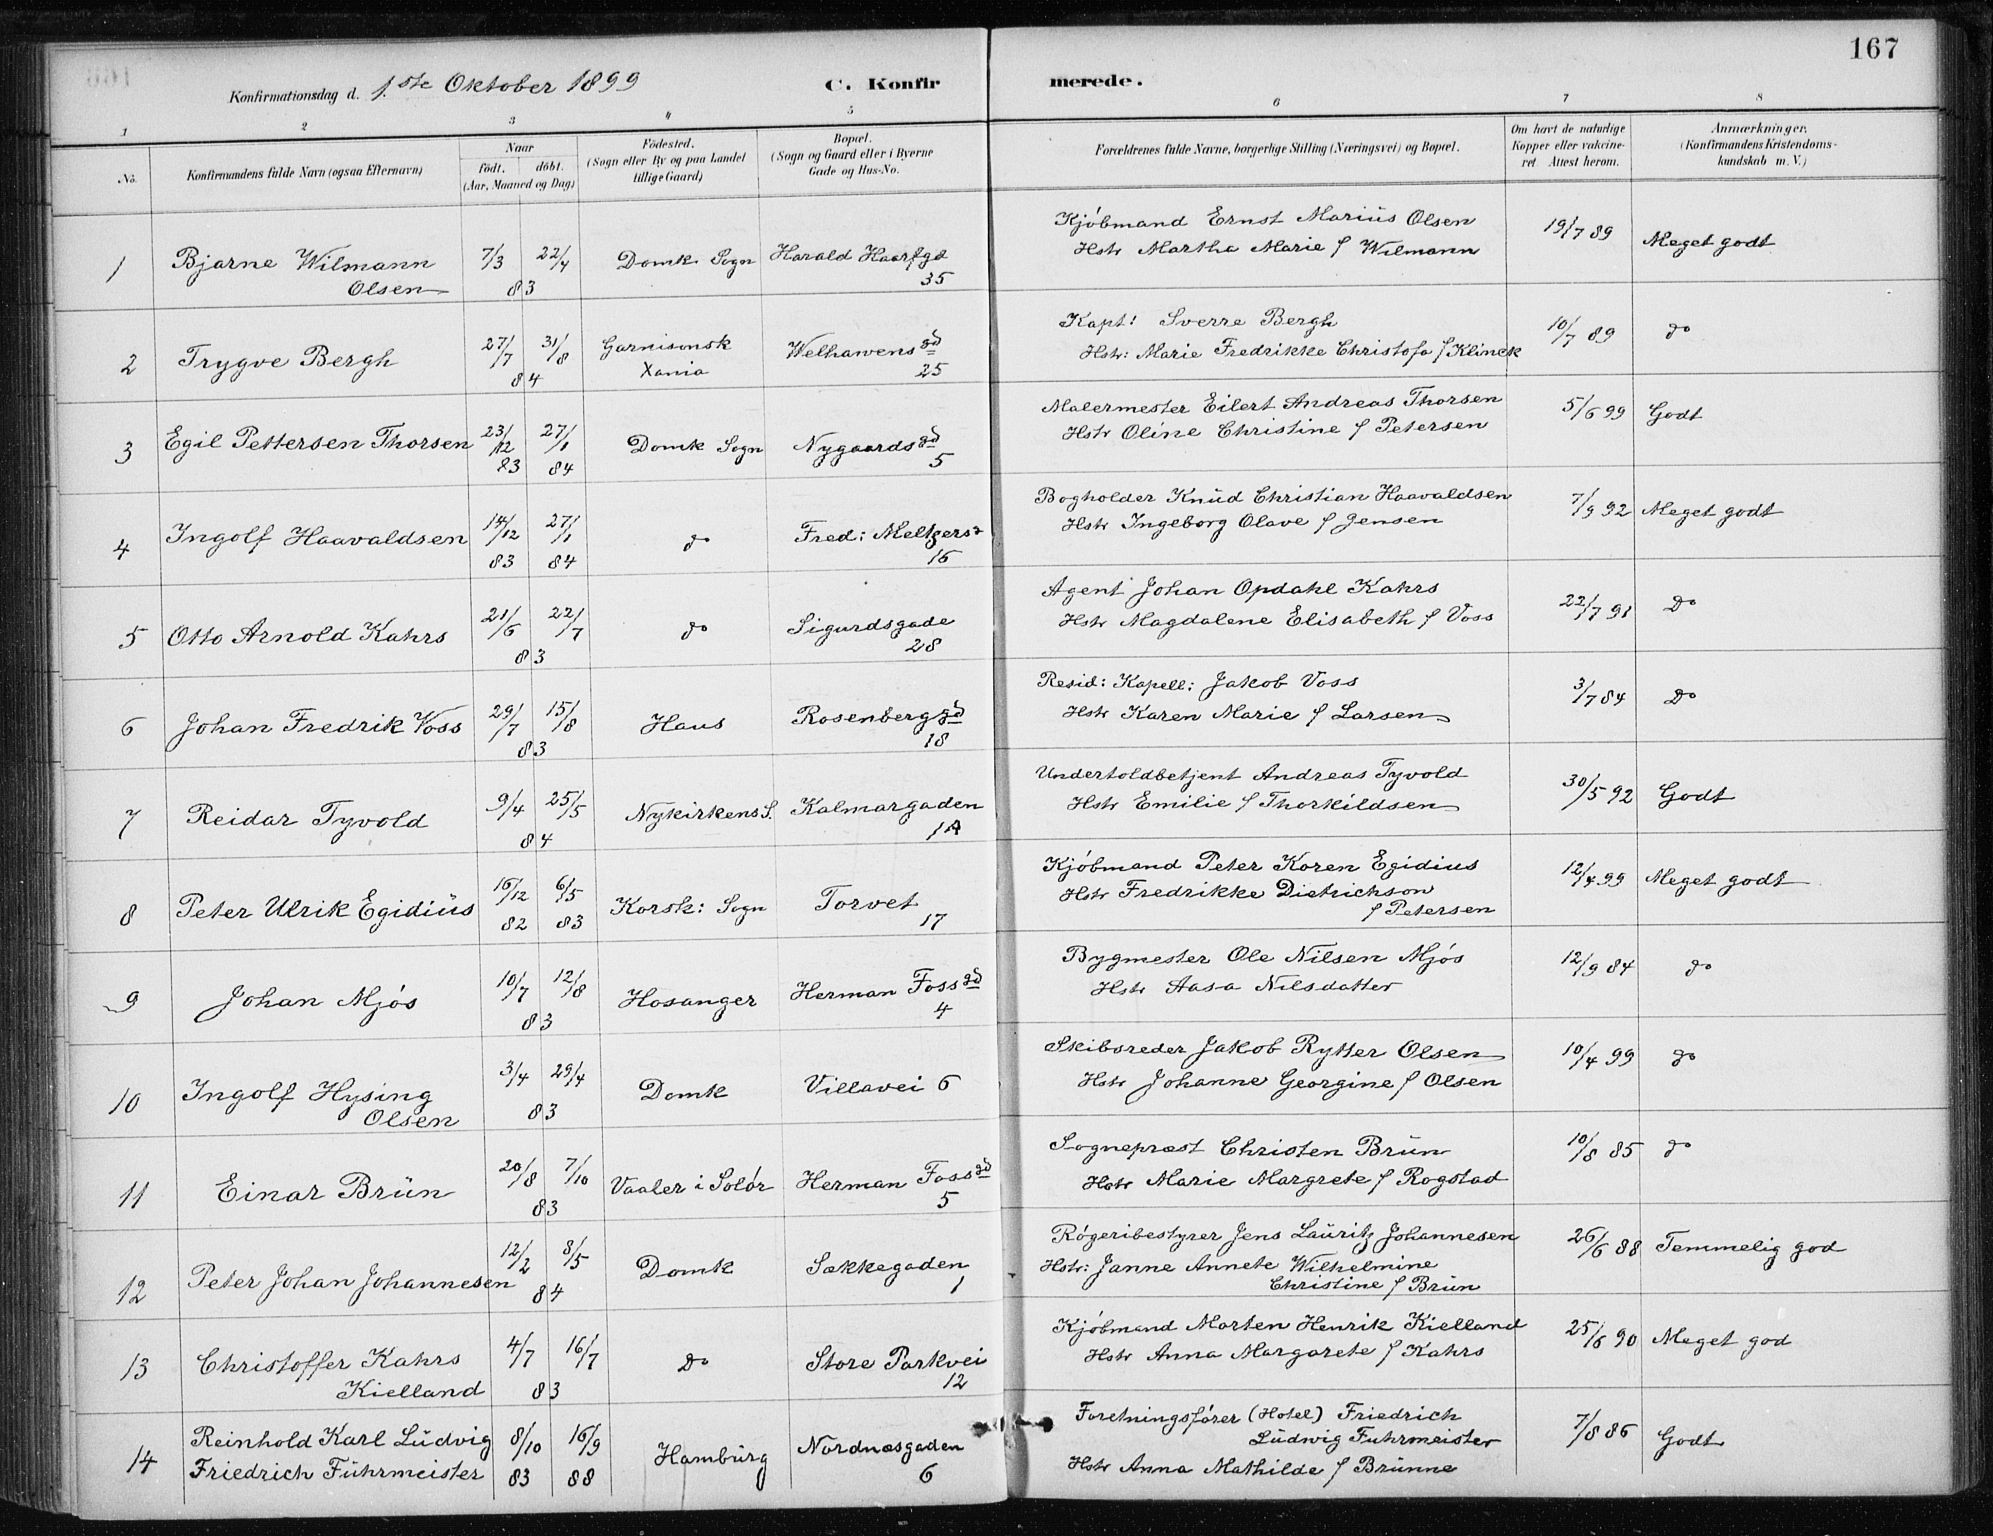 167
Konfirmationsdag d. 1.ste Oktober 1899 C. Konfirmerede.
1 2 3 4 5 6 7 8
No. Konfirmandens fulde Navn (ogsaa Efternavn) Naar født. døbt. (Aar, Maaned og Dag) Fødested. (Sogn eller By og paa Landet tillige Gaard) Bopæl. (Sogn og Gaard eller i Byerne Gade og Hus-No. Forældrenes fulde Navne, borgerlige Stilling (Næringsvei) og Bopæl. Om havt de naturlige Kopper eller vakcineret. Attest herom. Anmærkninger. (Konfirmandens Kristendomskundskab m. V.)
Kjøbmand Ernst Marius Olsen
1 Bjarne Wilmann 7/3 22/4 Domk Sogn Harald Haarfgd Hstr Martha Marie f Wilmann 19/7 89 Meget godt
Olsen 83 35
Kapt: Sverre Bergh
2 Trygve Bergh 27/7 31/8 Garnisonsk Welhavens gd Hstr: Marie Fredrikke Christofa f Klinck 10/7 89 do
84 Xania 25
Malermester Eilert Andreas Thorsen
3 Egil Pettersen Thorsen 23/12 27/1 Domk Sogn Nygaards gd Hstr Oline Christine f Petersen 5/6 99 Godt
83 84 5
Bogholder Knud Christian Haavaldsen
4 Ingolf Haavaldsen 14/12 27/1 do Fred: Meltzersd Hstr Ingeborg Olave f Jensen 7/9 92 Meget godt
83 84 16
Agent Johan Opdahl Kahrs
5 Otto Arnold Kahrs 21/6 22/7 do Sigurdsgade Hstr Magdalene Elisabeth f Voss 22/7 91 Do
83 28
Resid: Kapell: Jakob Voss
6 Johan Fredrik Voss 29/7 15/8 Haus Rosenberg gd Hstr Karen Marie f Larsen 3/7 84 Do
83 18
Undertoldbetjent Andreas Tyvold
7 Reidar Tyvold 9/4 25/5 Nykirkens S. Kalmargaden Hstr Emilie f Thorkildsen 30/5 92 Godt
84 1A
Kjøbmand Peter Koren Egidius
8 Peter Ulrik Egidius 16/12 6/5 Korsk: Sogn Torvet Hstr Fredrikke Dietrichson 12/4 99 Meget godt
82 83 17 f Petersen
Bygmester Ole Nilsen Mjøs
9 Johan Mjøs 10/7 12/8 Hosanger Herman Foss gd Hstr Aasa Nilsdatter 12/9 84 do
83 4
Skibsreder Jakob Rytter Olsen
10 Ingolf Hysing 3/4 29/4 Domk Villavei 6 Hstr Johanne Georgine f Olsen 10/4 99 do
Olsen 83
Sogneprest Christen Brun
11 Einar Brun 20/8 7/10 Vaaler i Solør Herman Foss gd Hstr Marie Margrete f Rogstad 10/8 85 do
83 5
Røgeribestyrer Jens Lauritz Johannesen
12 Peter Johan Johannesen 12/2 8/5 Domk Sækkegaden Hstr: Janne Annete Wilhelmine 26/6 88 Temmelig god
84 1 Christine f Brun
Kjøbmand Morten Henrik Kielland
13 Christoffer Kahrs 4/7 16/7 do Store Parkvei Hstr Anna Margarete f Kahrs 25/6 90 Meget god
Kielland 83 12
Forretningsfører (Hotel) Friedrich
14 Reinhold Karl Ludvig 8/10 16/9 Hamburg Nordnæsgaden Ludwig Fuhrmeister 7/8 86 Godt
Friedrich Fuhrmeister 83 88 6 Hstr Anna Mathilde f Brunne